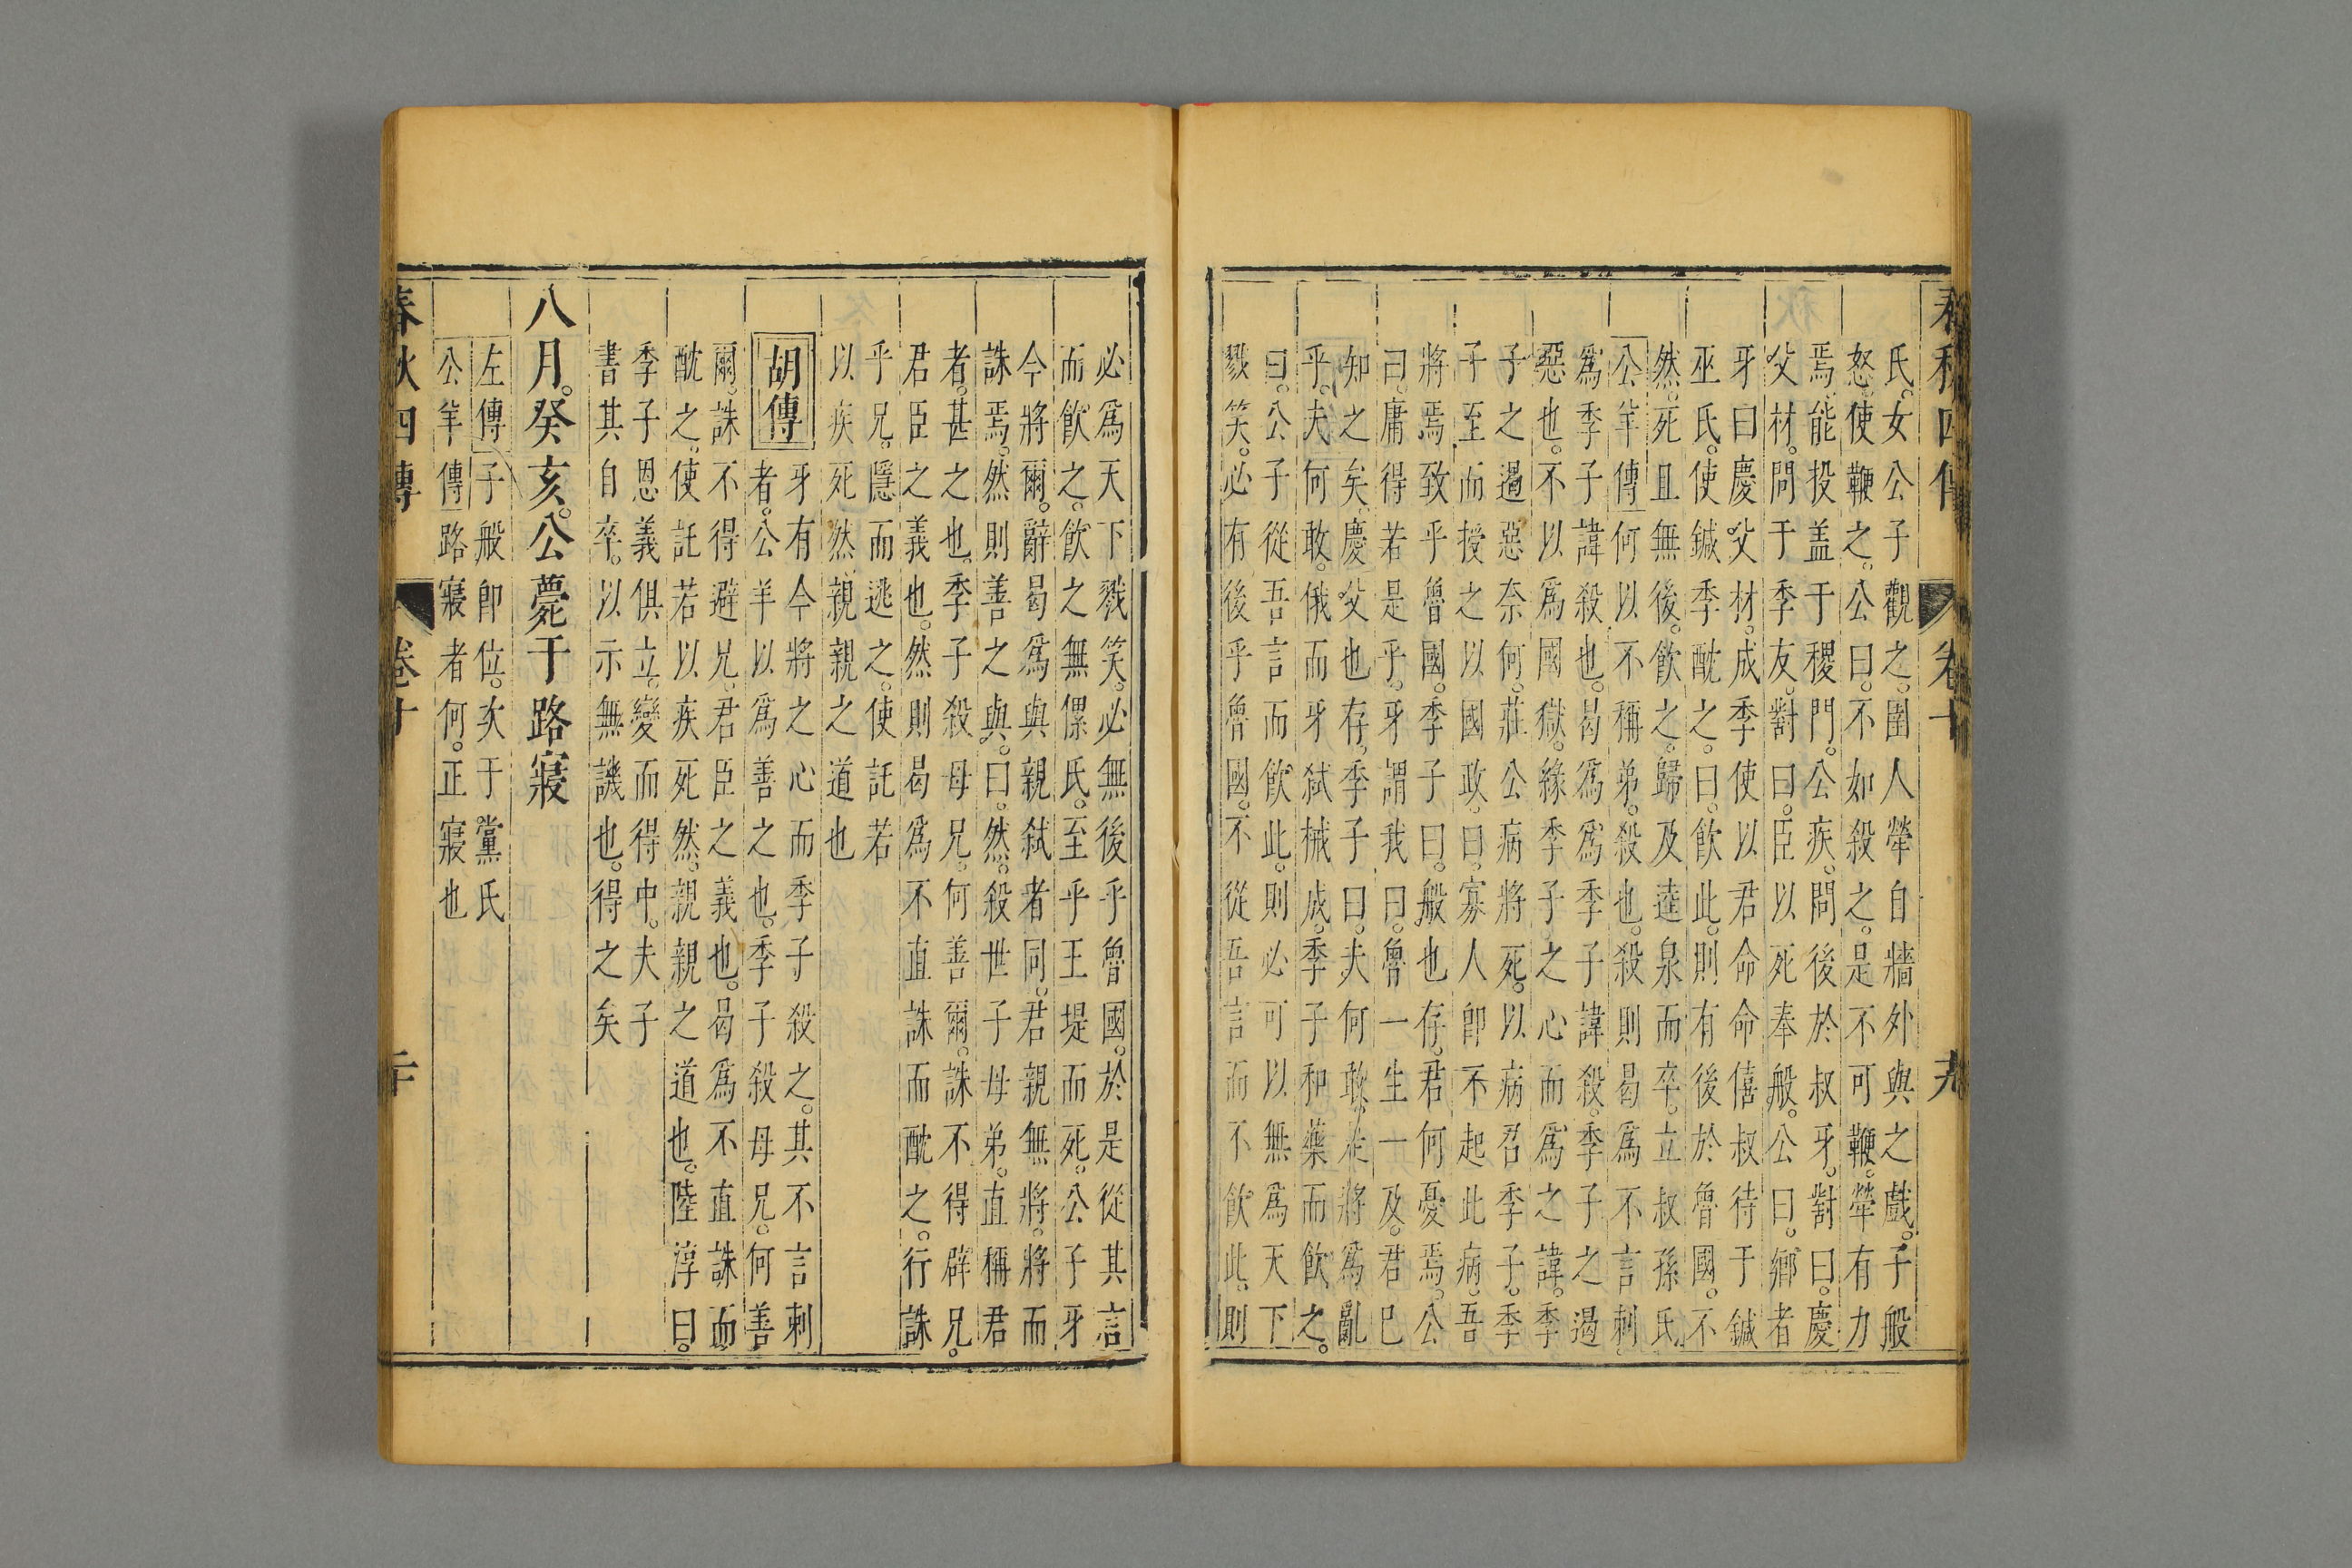 春秋四傳 卷十 十九
氏。女公子觀之。圉人犖自牆外與之戲。子般
怒。使鞭之。公曰。不如殺之。是不可鞭。犖有力
焉。能投盖于稷門。公疾。問後於叔牙。對曰。慶
父材。問于季友。對曰。臣以死奉般。公曰。鄉者
牙曰慶父材。成季使以君命命僖叔待于鍼
巫氏。使鍼季酖之。曰。飲此。則有後於魯國。不
然。死且無後。飲之。歸及逵泉而卒。立叔孫氏
公羊傳何以不稱弟。殺也。殺則曷爲不言刺
爲季子諱殺也。曷爲爲季子諱殺。季子之遏
惡也。不以爲國獄。緣季子之心而爲之諱。季
子之遏惡奈何。莊公病將死。以病召季子。季
子至而授之以國政。曰。寡人即不起此病。吾
將焉致乎魯國。季子曰。般也存。君何憂焉。公
曰。庸得若是乎。牙謂我曰。魯一生一及。君已
知之矣。慶父也存。季子曰。夫何敢。是將爲亂
乎。夫何敢。俄而牙弒械成。季子和藥而飲之。
曰。公子從吾言而飲此。則必可以無爲天下
戮笑。必有後乎魯國。不從吾言而不飲此。則
必爲天下戮笑。必無後乎魯國。於是從其言
而飲之。飲之無傫氏。至乎王堤而死。公子牙
今將爾。辭曷爲與親弒者同。君親無將。將而
誅焉。然則善之與。曰。然。殺世子母弟。直稱君
者。甚之也。季子殺母兄。何善爾。誅不得辟兄。
君臣之義也。然則曷爲不直誅而酖之。行誅
乎兄。隱而逃之。使託若
以疾死然親親之道也
胡傳牙有今將之心而季子殺之。其不言刺
者。公羊以爲善之也。季子殺母兄。何善
爾。誅不得避兄。君臣之義也。曷爲不直誅而
酖之。使託若以疾死然。親親之道也。陸淳曰。
季子恩義俱立。變而得中。夫子
書其自卒。以示無譏也。得之矣
八月。癸亥。公薨于路寢
左傳子般即位。次于黨氏
公羊傳路寢者何。正寢也
春秋四傳 卷十 二十